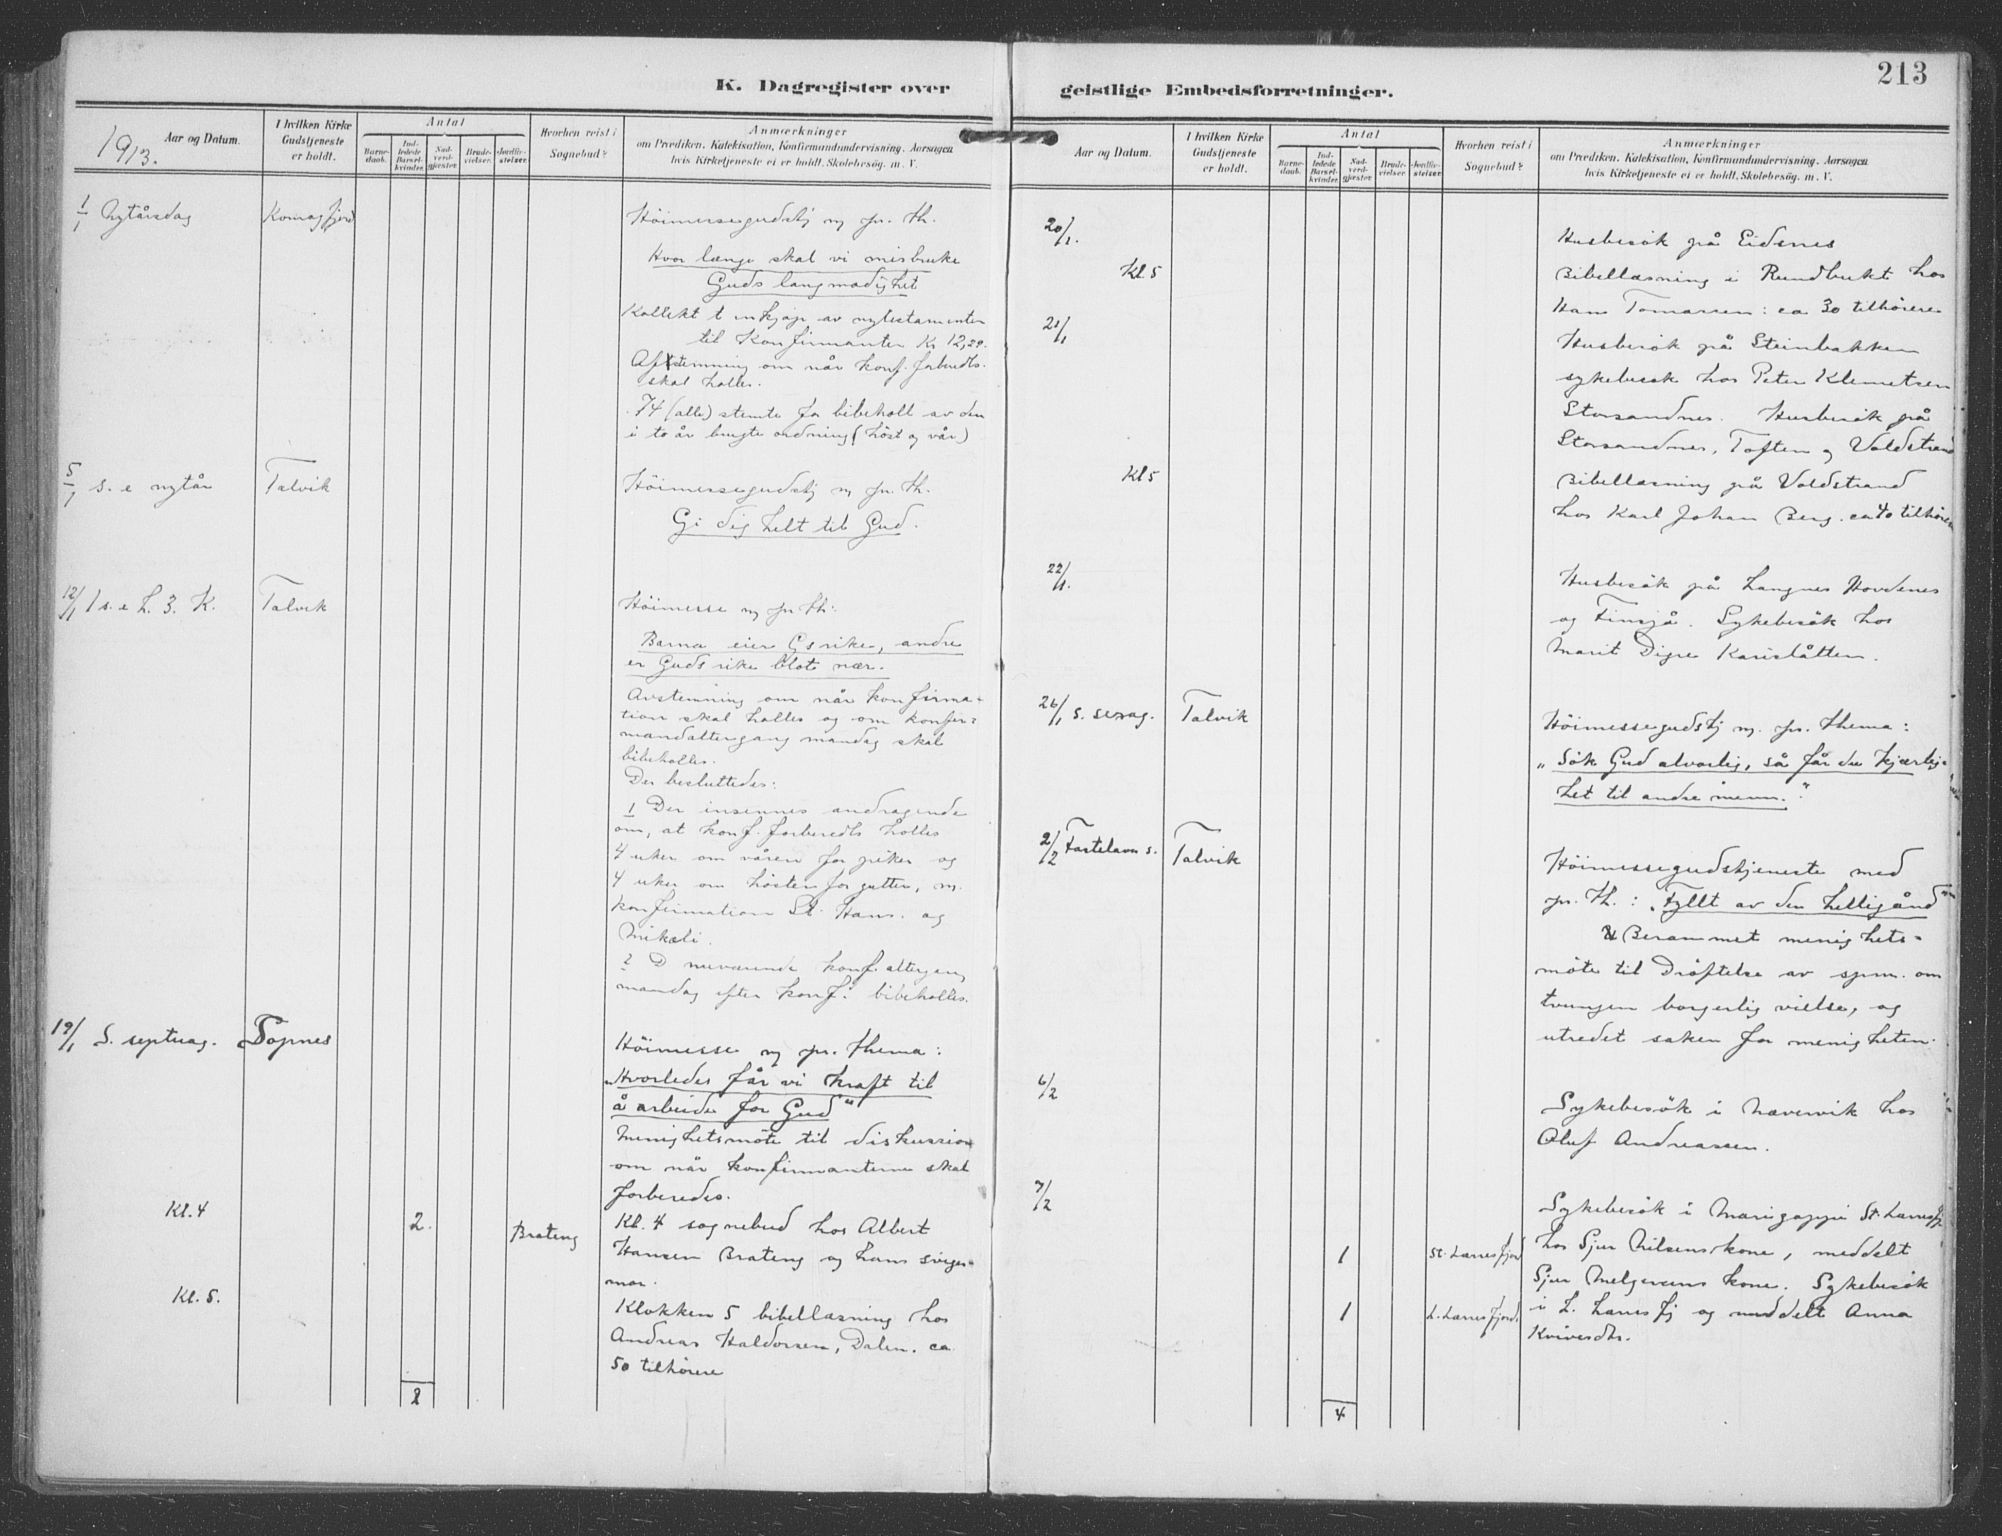 213
K. Dagregister over geistlige Embedsforretninger.
1913.
Aar og Datum.
I hvilken Kirke Gudstjeneste er holdt.
Antal
Barnedaab.
Indledede Barselkvinder.
Nadverdgjester.
Brudevielser.
Jordfæstelser.
Hvorhen reist i Sognebud?
Anmærkninger
om Prædiken, Katekisation, Konfirmandundervisning, Aarsagen
hvis Kirketjeneste ei er holdt, Skolebesøg. m. V.
1/1 Nytårsdag Komagfjord Höimessegudstj m pr. th.
Hvor længe skal vi misbruke
Guds langmodighet
Kollekt t innkjöp av nytestamenter
til Konfirmanter Kr 12,29.
Afstemning om når konf. forberedts.
skal holles.
74 (alle) stemte for bibeholt av den
i to år brugte ordning (höst og vår)
5/1 s. e nytår Talvik Höimessegudstj m pr. th.
Gi dig helt til Gud.
12/1 1 s. e h. 3. K. Talvik Höimesse m pr th:
Barna eier Gs rike, andre
er Guds rike blot nær.
Avstemning om når konfirma-
tion skal holles og om konfir-
mandaltergang mandag skal
bibeholles.
Der besluttedes:
1 Der insennes andragende
om, at konf. forberedts holles
4 uker om våren for piker og
4 uker om hösten for gutter, m.
konfirmation St. Hans. og
Mikæli.
2 D nuværende konf. altergang
mandag efter konf. bibeholles.
19/1 S. septuag. Sopnes Höimesse m pr. thema:
"Hvorledes får vi kraft til
å arbeide for Gud"
Menighetsmöte til diskussion
om når konfirmanterne skal
forberedes.
Kl. 4 2. Brateng Kl. 4 sognebud hos Albert
Hansen Brateng og hans sviger-
mor.
Kl. 5. Klokken 5 bibellæsning hos
Andreas Haldorsen, Dalen. ca
50 tilhörere
2
Aar og Datum.
I hvilken Kirke Gudstjeneste er holdt.
Antal
Barnedaab.
Indledede Barselkvinder.
Nadverdgjester.
Brudevielser.
Jordfæstelser.
Hvorhen reist i Sognebud?
Anmærkninger
om Prædiken, Katekisation, Konfirmandundervisning, Aarsagen
hvis Kirketjeneste ei er holdt, Skolebesøg. m. V.
20/1. Husbesök på Eidsnes
Kl 5 Bibellæsning i Rundbukt hos
Hans Tomassen: ca 30 tilhörere
21/1 Husbesök på Steinbakken
sykebesök hos Peter Klemetsen
Storsandnes. Husbesök på
Storsandnes, Toften og Voldstrand
Kl 5 Bibellæsning på Voldstrand
hos Karl Johan Berg. ca 40 tilhörere
22/1. Husbesök på Langnes Hovdenes
og Finsjå. Sykebesök hos
Marit Digre Karislåtten.
26/1 s. sexag. Talvik Höimessegudstj m. pr. thema:
"Sök Gud alvorlig, så får du kjærlig-
het til andre menn."
2/2 Fastelavns s. Talvik Höimessegudstjeneste med
pr. th.: "Fyllt av den helligånd"
Berammet menighets-
möte til Dröftelse av spm. om
tvungen borgerlig vielse, og
utredet saken for menigheten.
6/2 Sykebesök i Nævervik hos
Oluf Andreassen.
7/2 Sykebesök i St. Lærresfj
1 St. Lærresfjord hos Sjur Nilsens kone, meddelt
Sjur kone. Sykebesök
1 L. Lærresfjord i L. Lærresfj og meddelt Anna
4